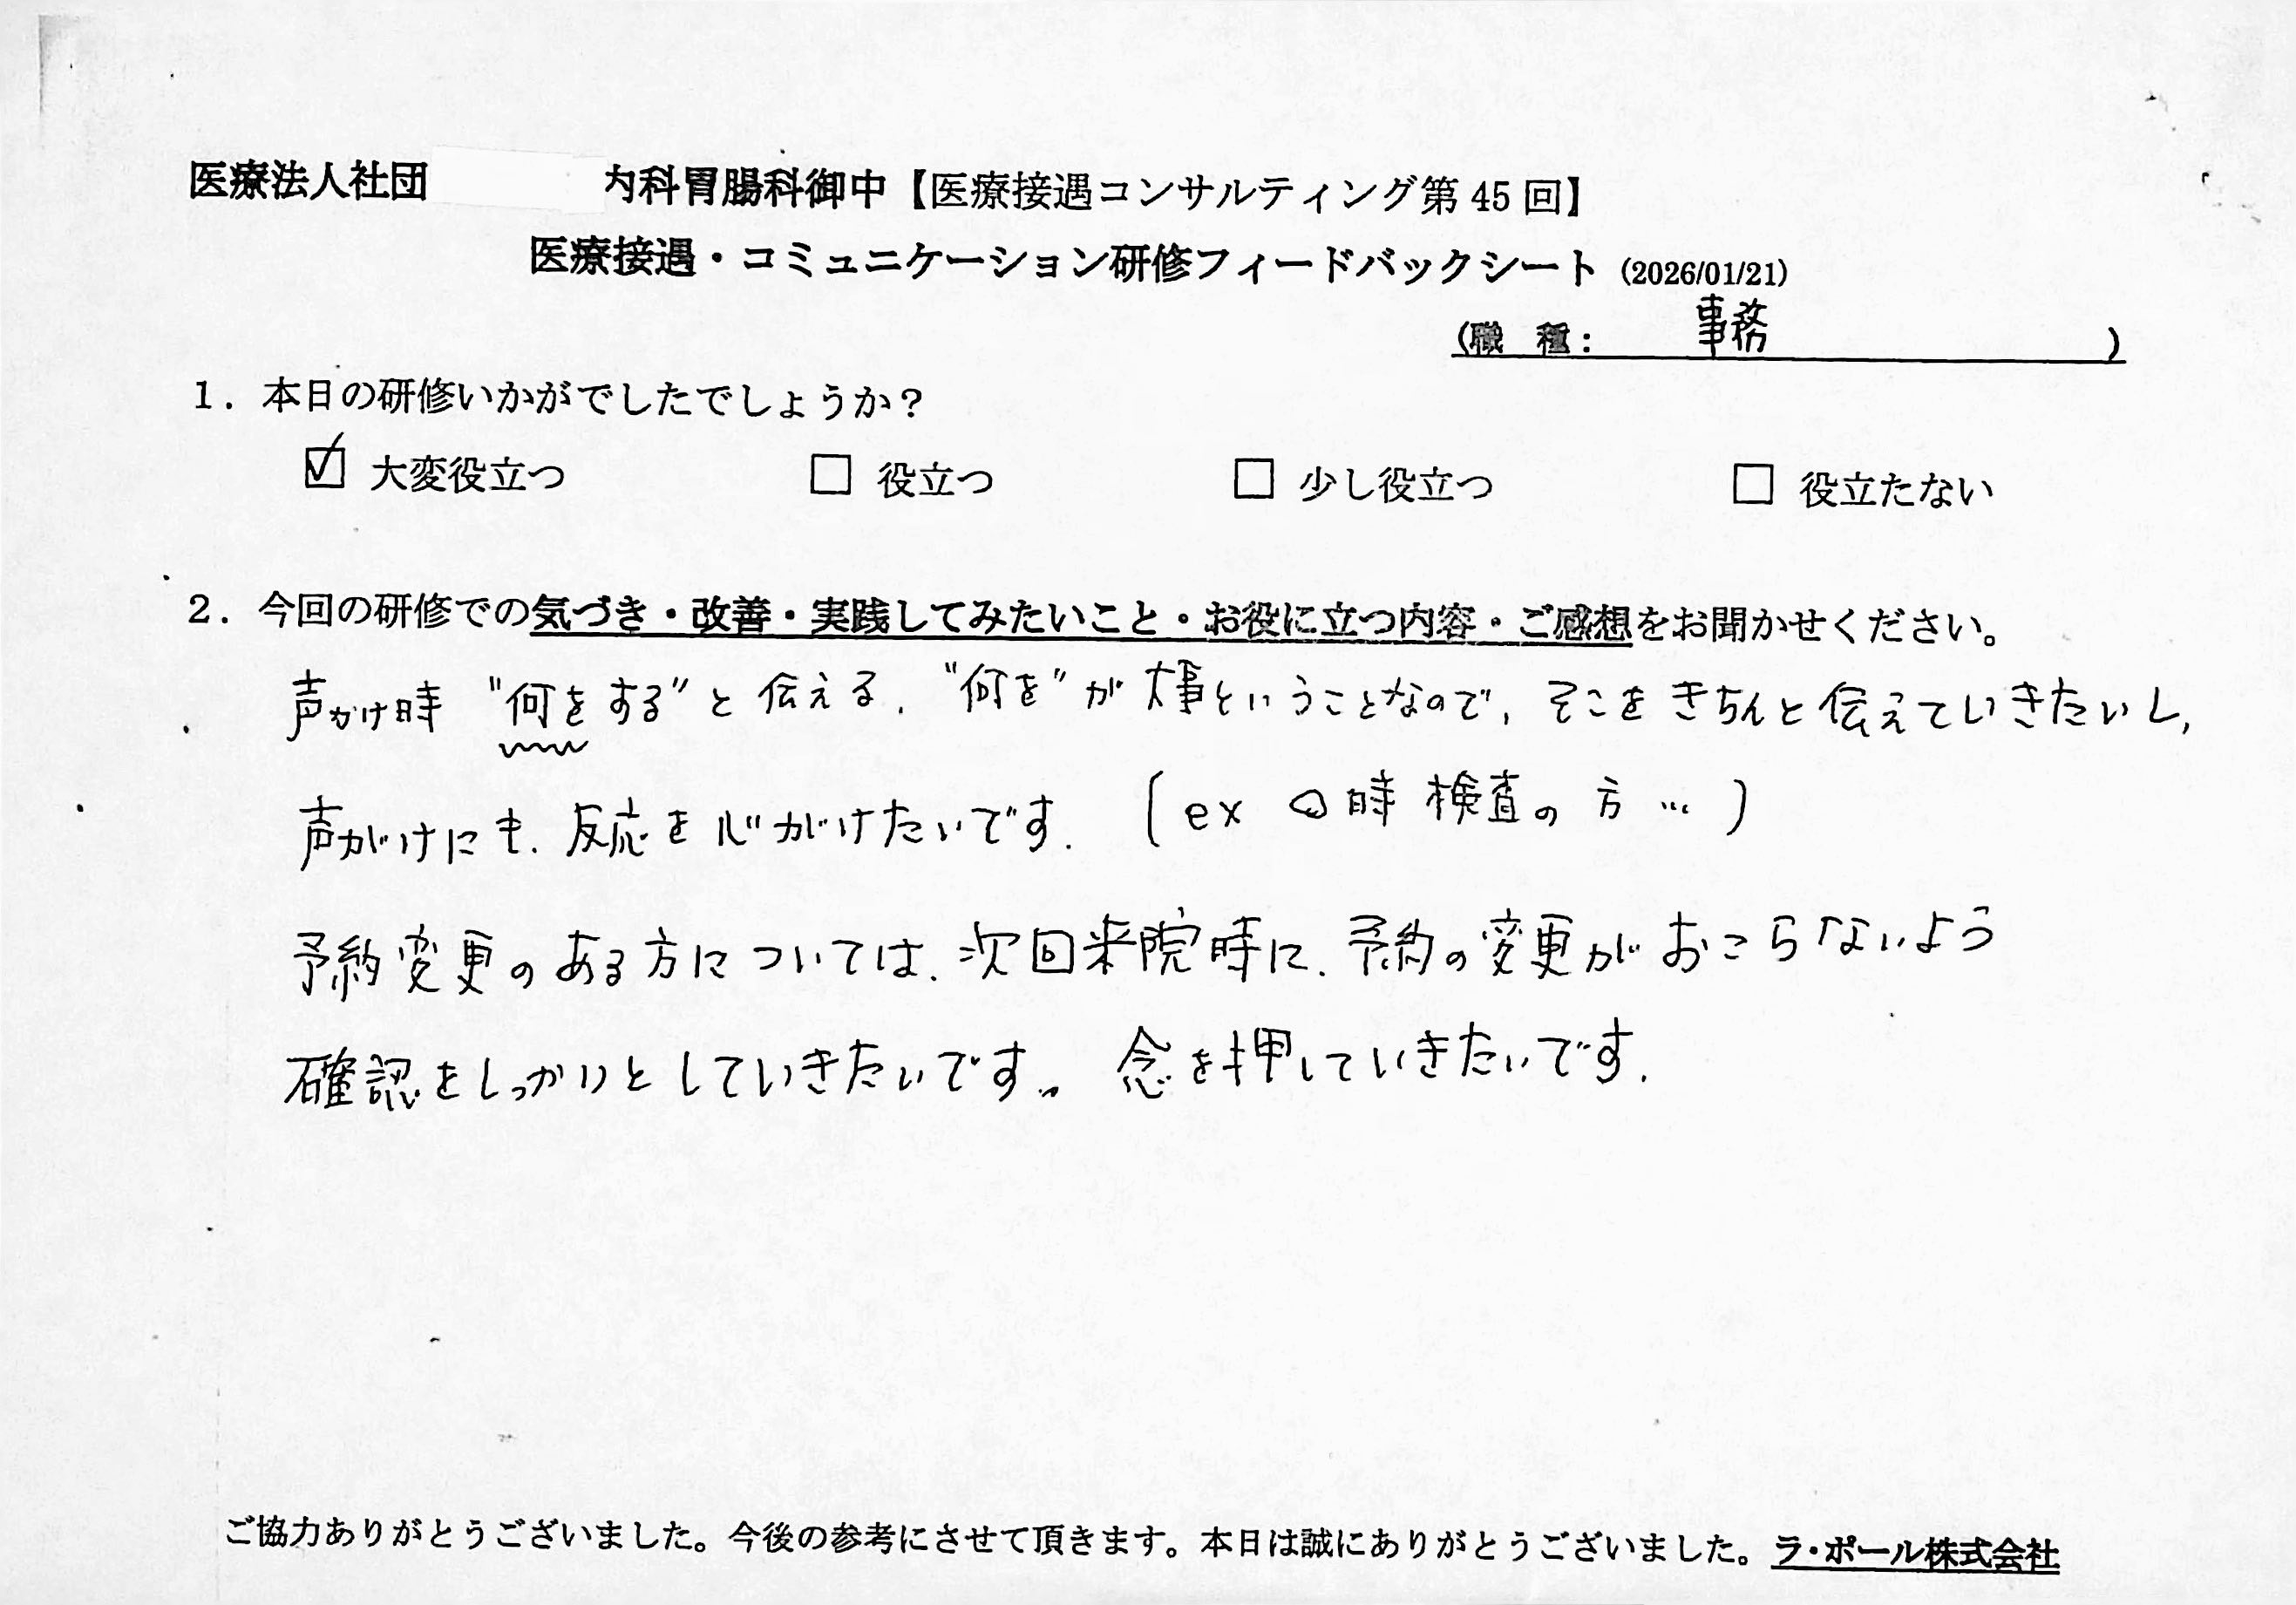 医療法人社団 内科胃腸科御中【医療接遇コンサルティング第45回】
医療接遇・コミュニケーション研修フィードバックシート (2026/01/21)
(職 種: 事務 )
1. 本日の研修いかがでしたでしょうか?
☑ 大変役立つ □ 役立つ □ 少し役立つ □ 役立たない
2. 今回の研修での気づき・改善・実践してみたいこと・お役に立つ内容・ご感想をお聞かせください。
声かけ時 "何をする"と伝える. "何を"が大事ということなので, そこをきちんと伝えていきたいし,
声がけにも. 反応を心がけたいです. (ex ○時 検査の方…)
予約変更のある方については. 次回来院時に. 予約の変更がおこらないよう
確認をしっかりとしていきたいです。 念を押していきたいです.
ご協力ありがとうございました。今後の参考にさせて頂きます。本日は誠にありがとうございました。ラ・ポール株式会社